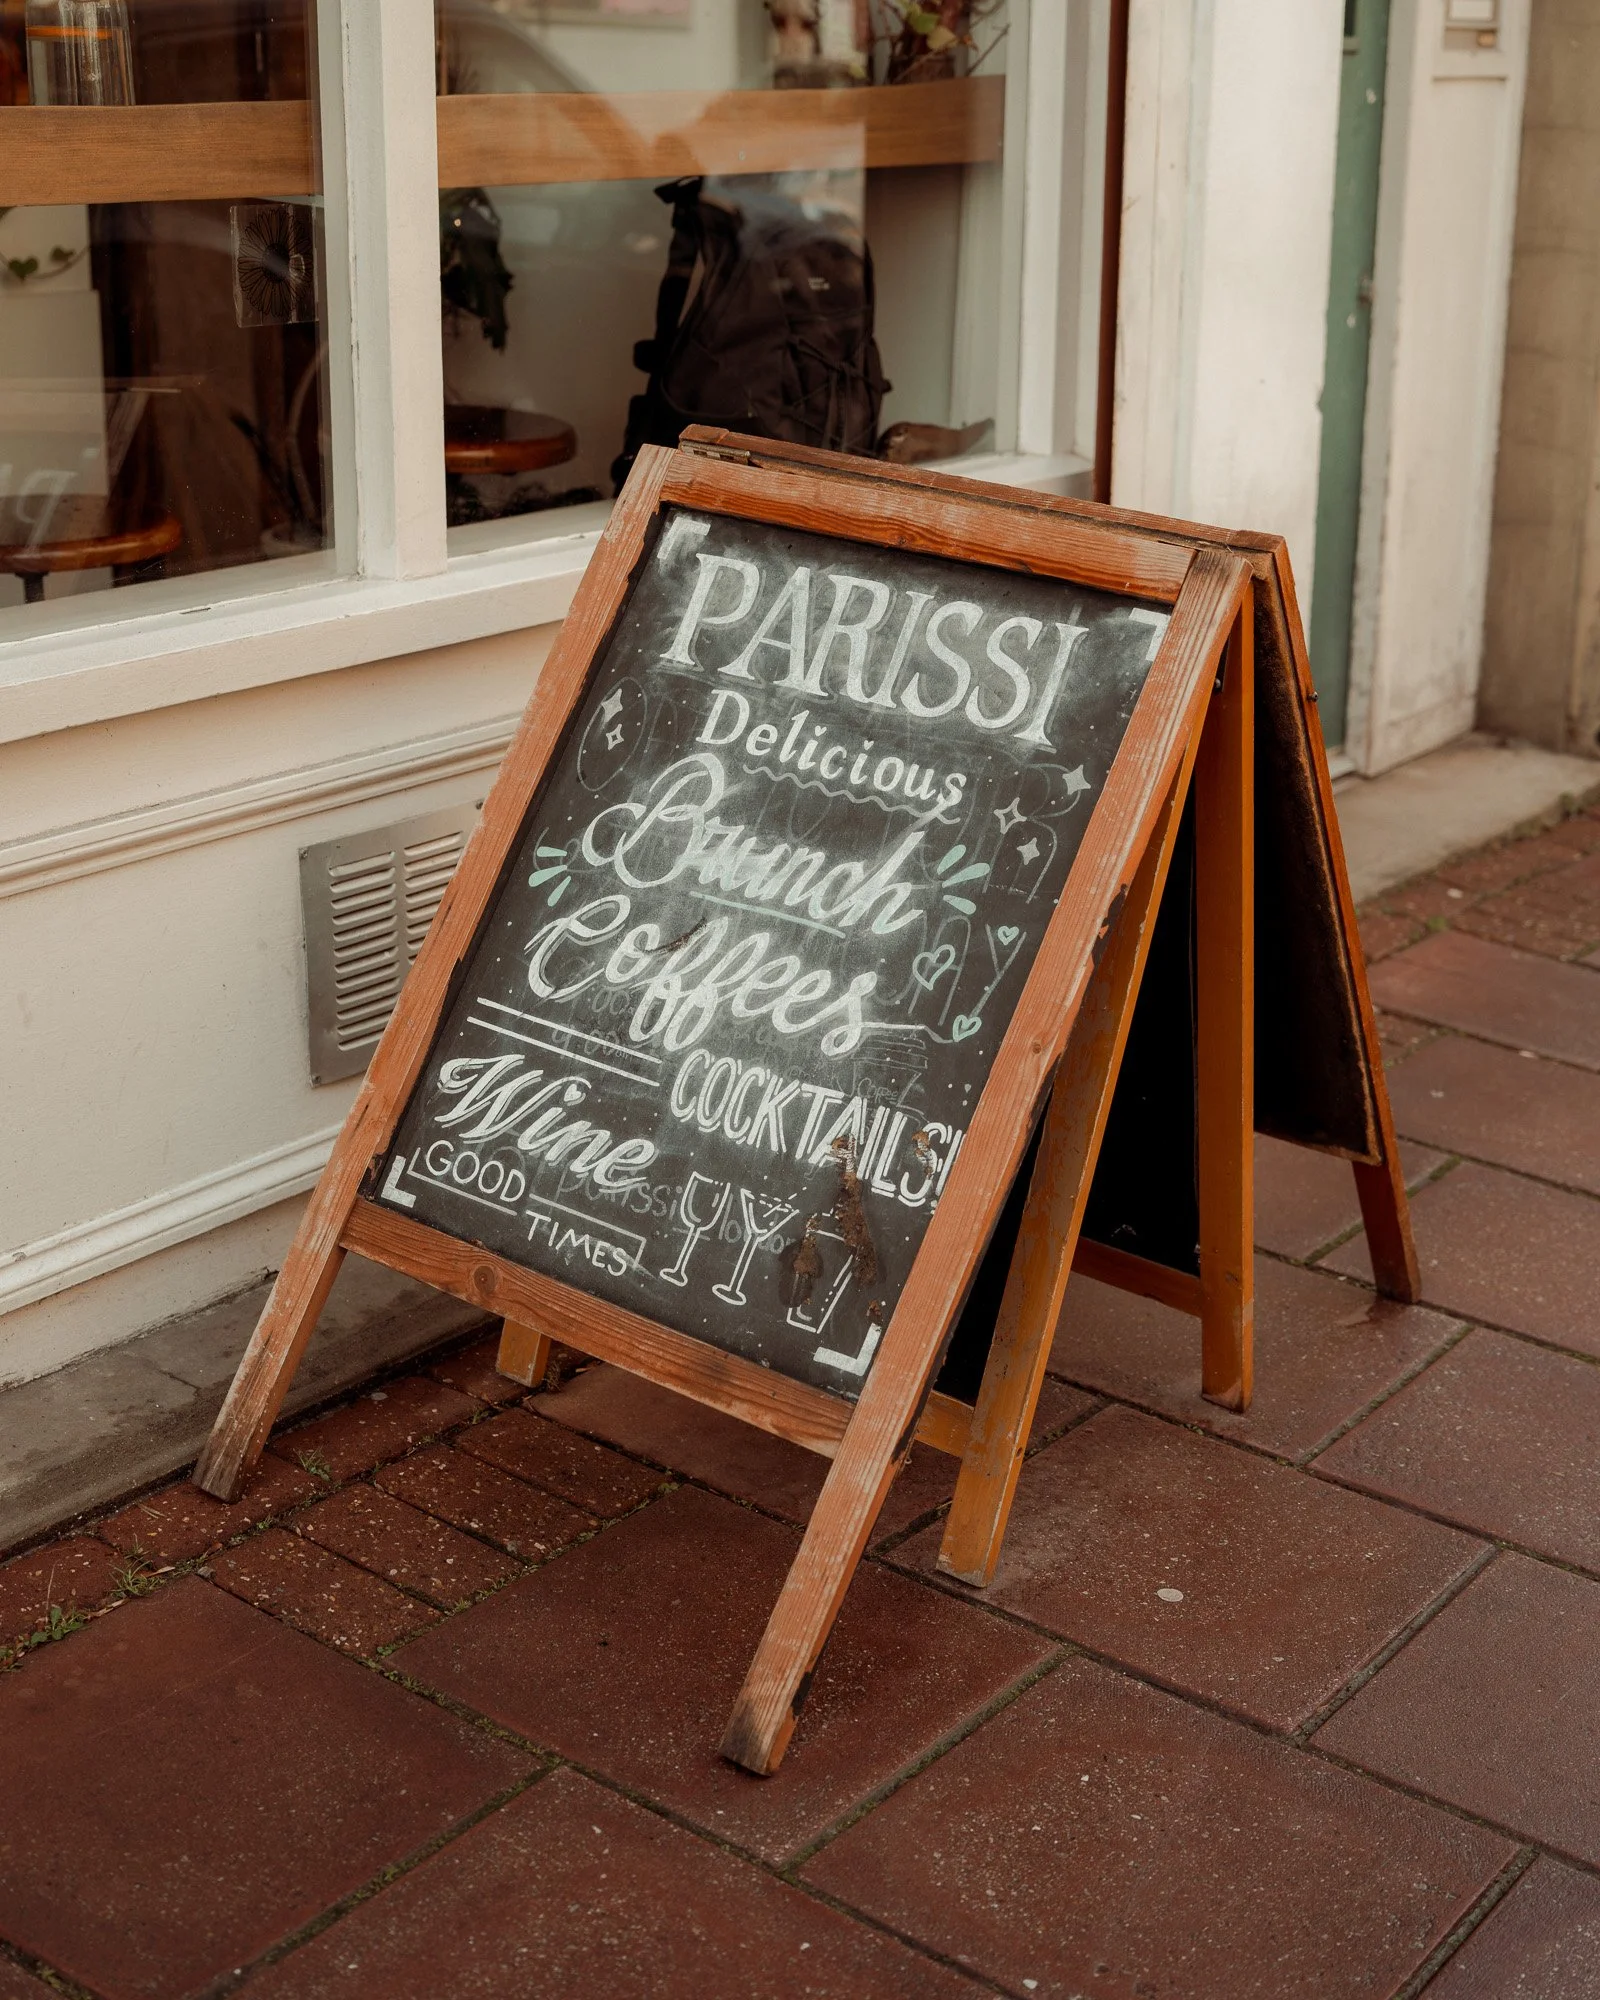 PARISSI
Delicious
Brunch
Coffees
Wine
COCKTAILS!
GOOD
TIMES
parissi london